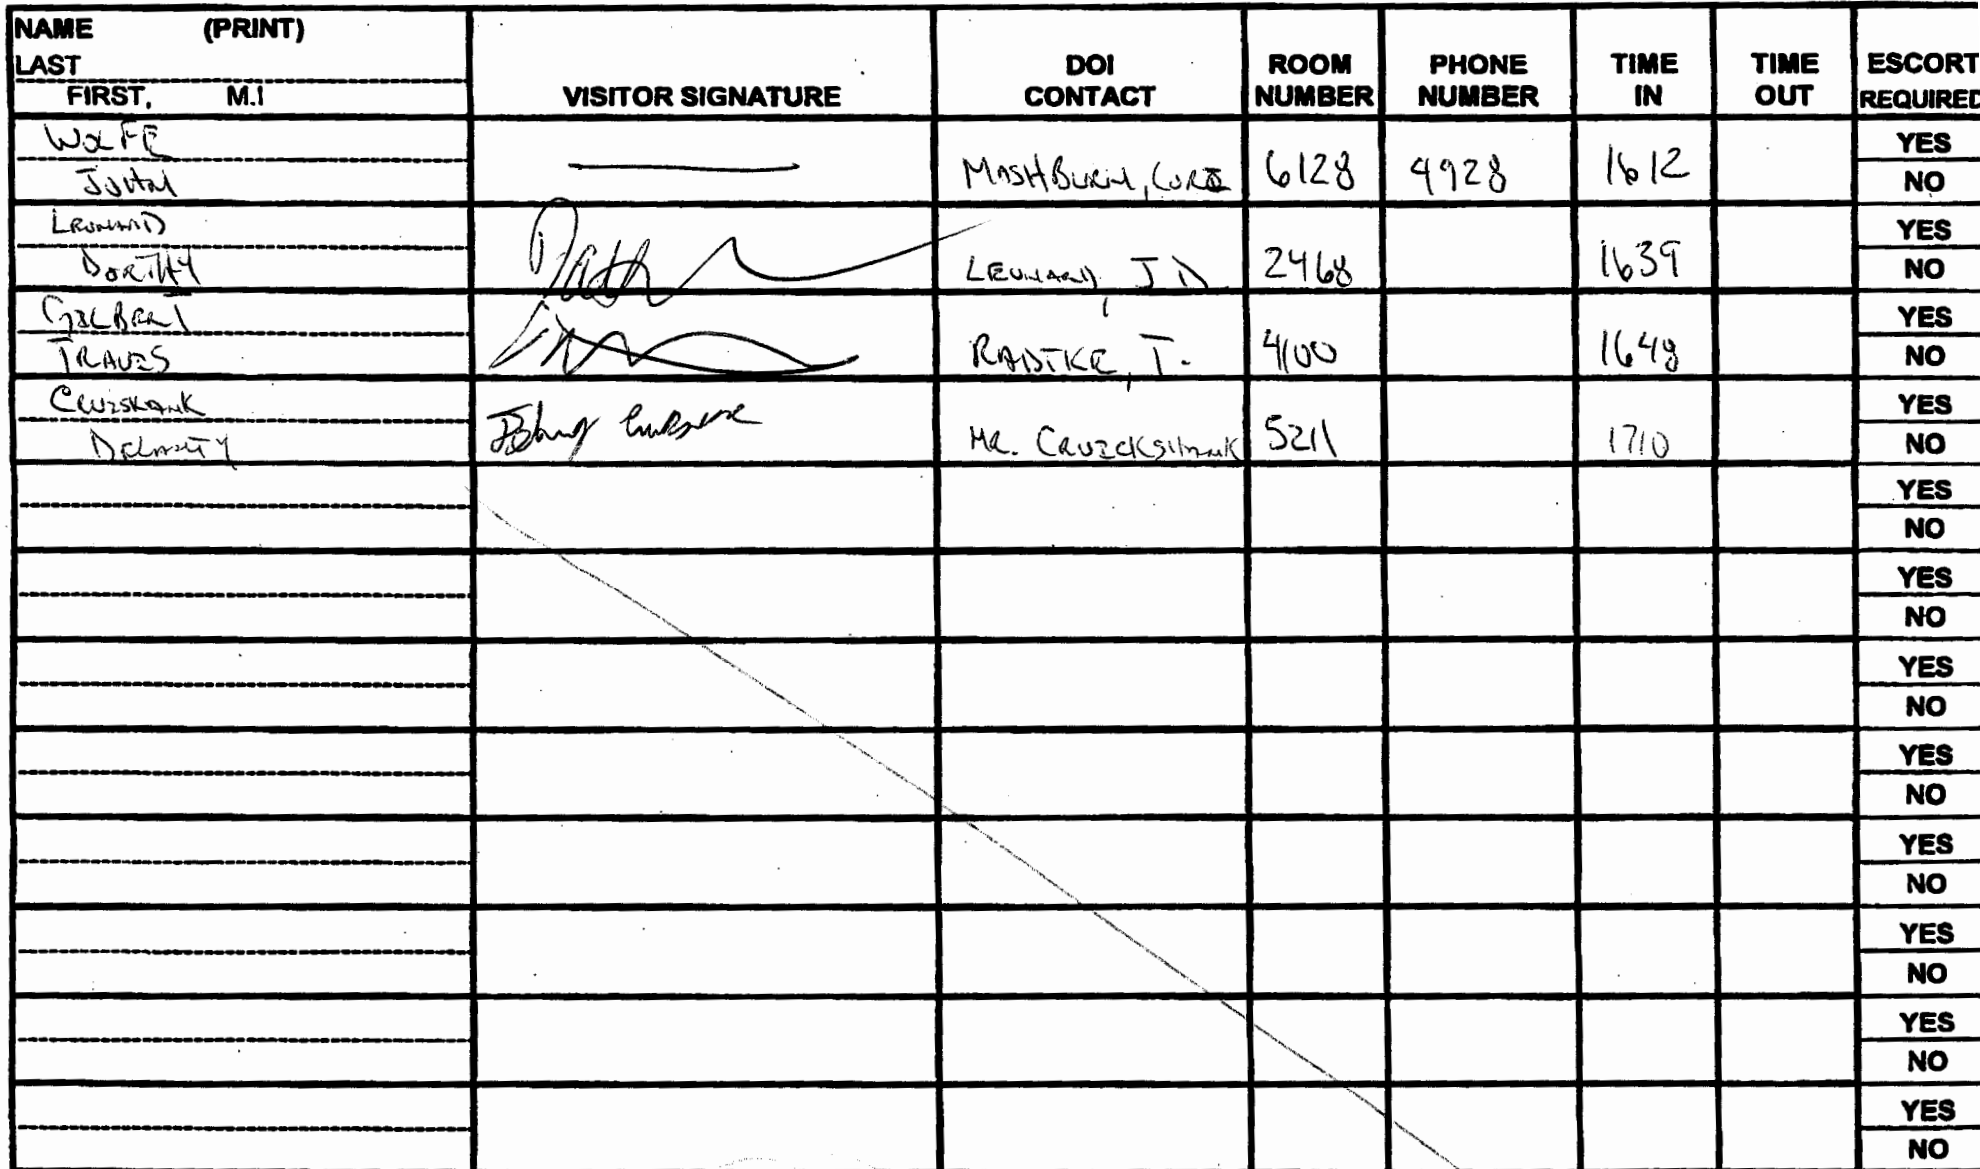 NAME (PRINT)
LAST
FIRST, M.I
VISITOR SIGNATURE
DOI CONTACT
ROOM NUMBER
PHONE NUMBER
TIME IN
TIME OUT
ESCORT REQUIRED
WOLFE
JOHN
MASHBURN, 6128 4928 1612
YES
NO
LEONARD
DORTHY
LEONARD, JD 2468 1639
YES
NO
GILBERT
TRAVIS
RADTKE, T. 4100 1648
YES
NO
CRUISKANK
MR. CRUICKSHANK 5211 1710
YES
NO
YES
NO
YES
NO
YES
NO
YES
NO
YES
NO
YES
NO
YES
NO
YES
NO